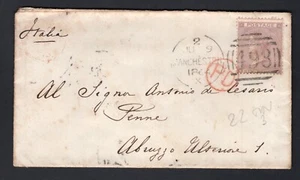 Italia
POSTAGE
2
MANCHESTER
498
PD
Al Signor Antonio de Cesaris
Penne
Abruzzo Ulteriore 1.